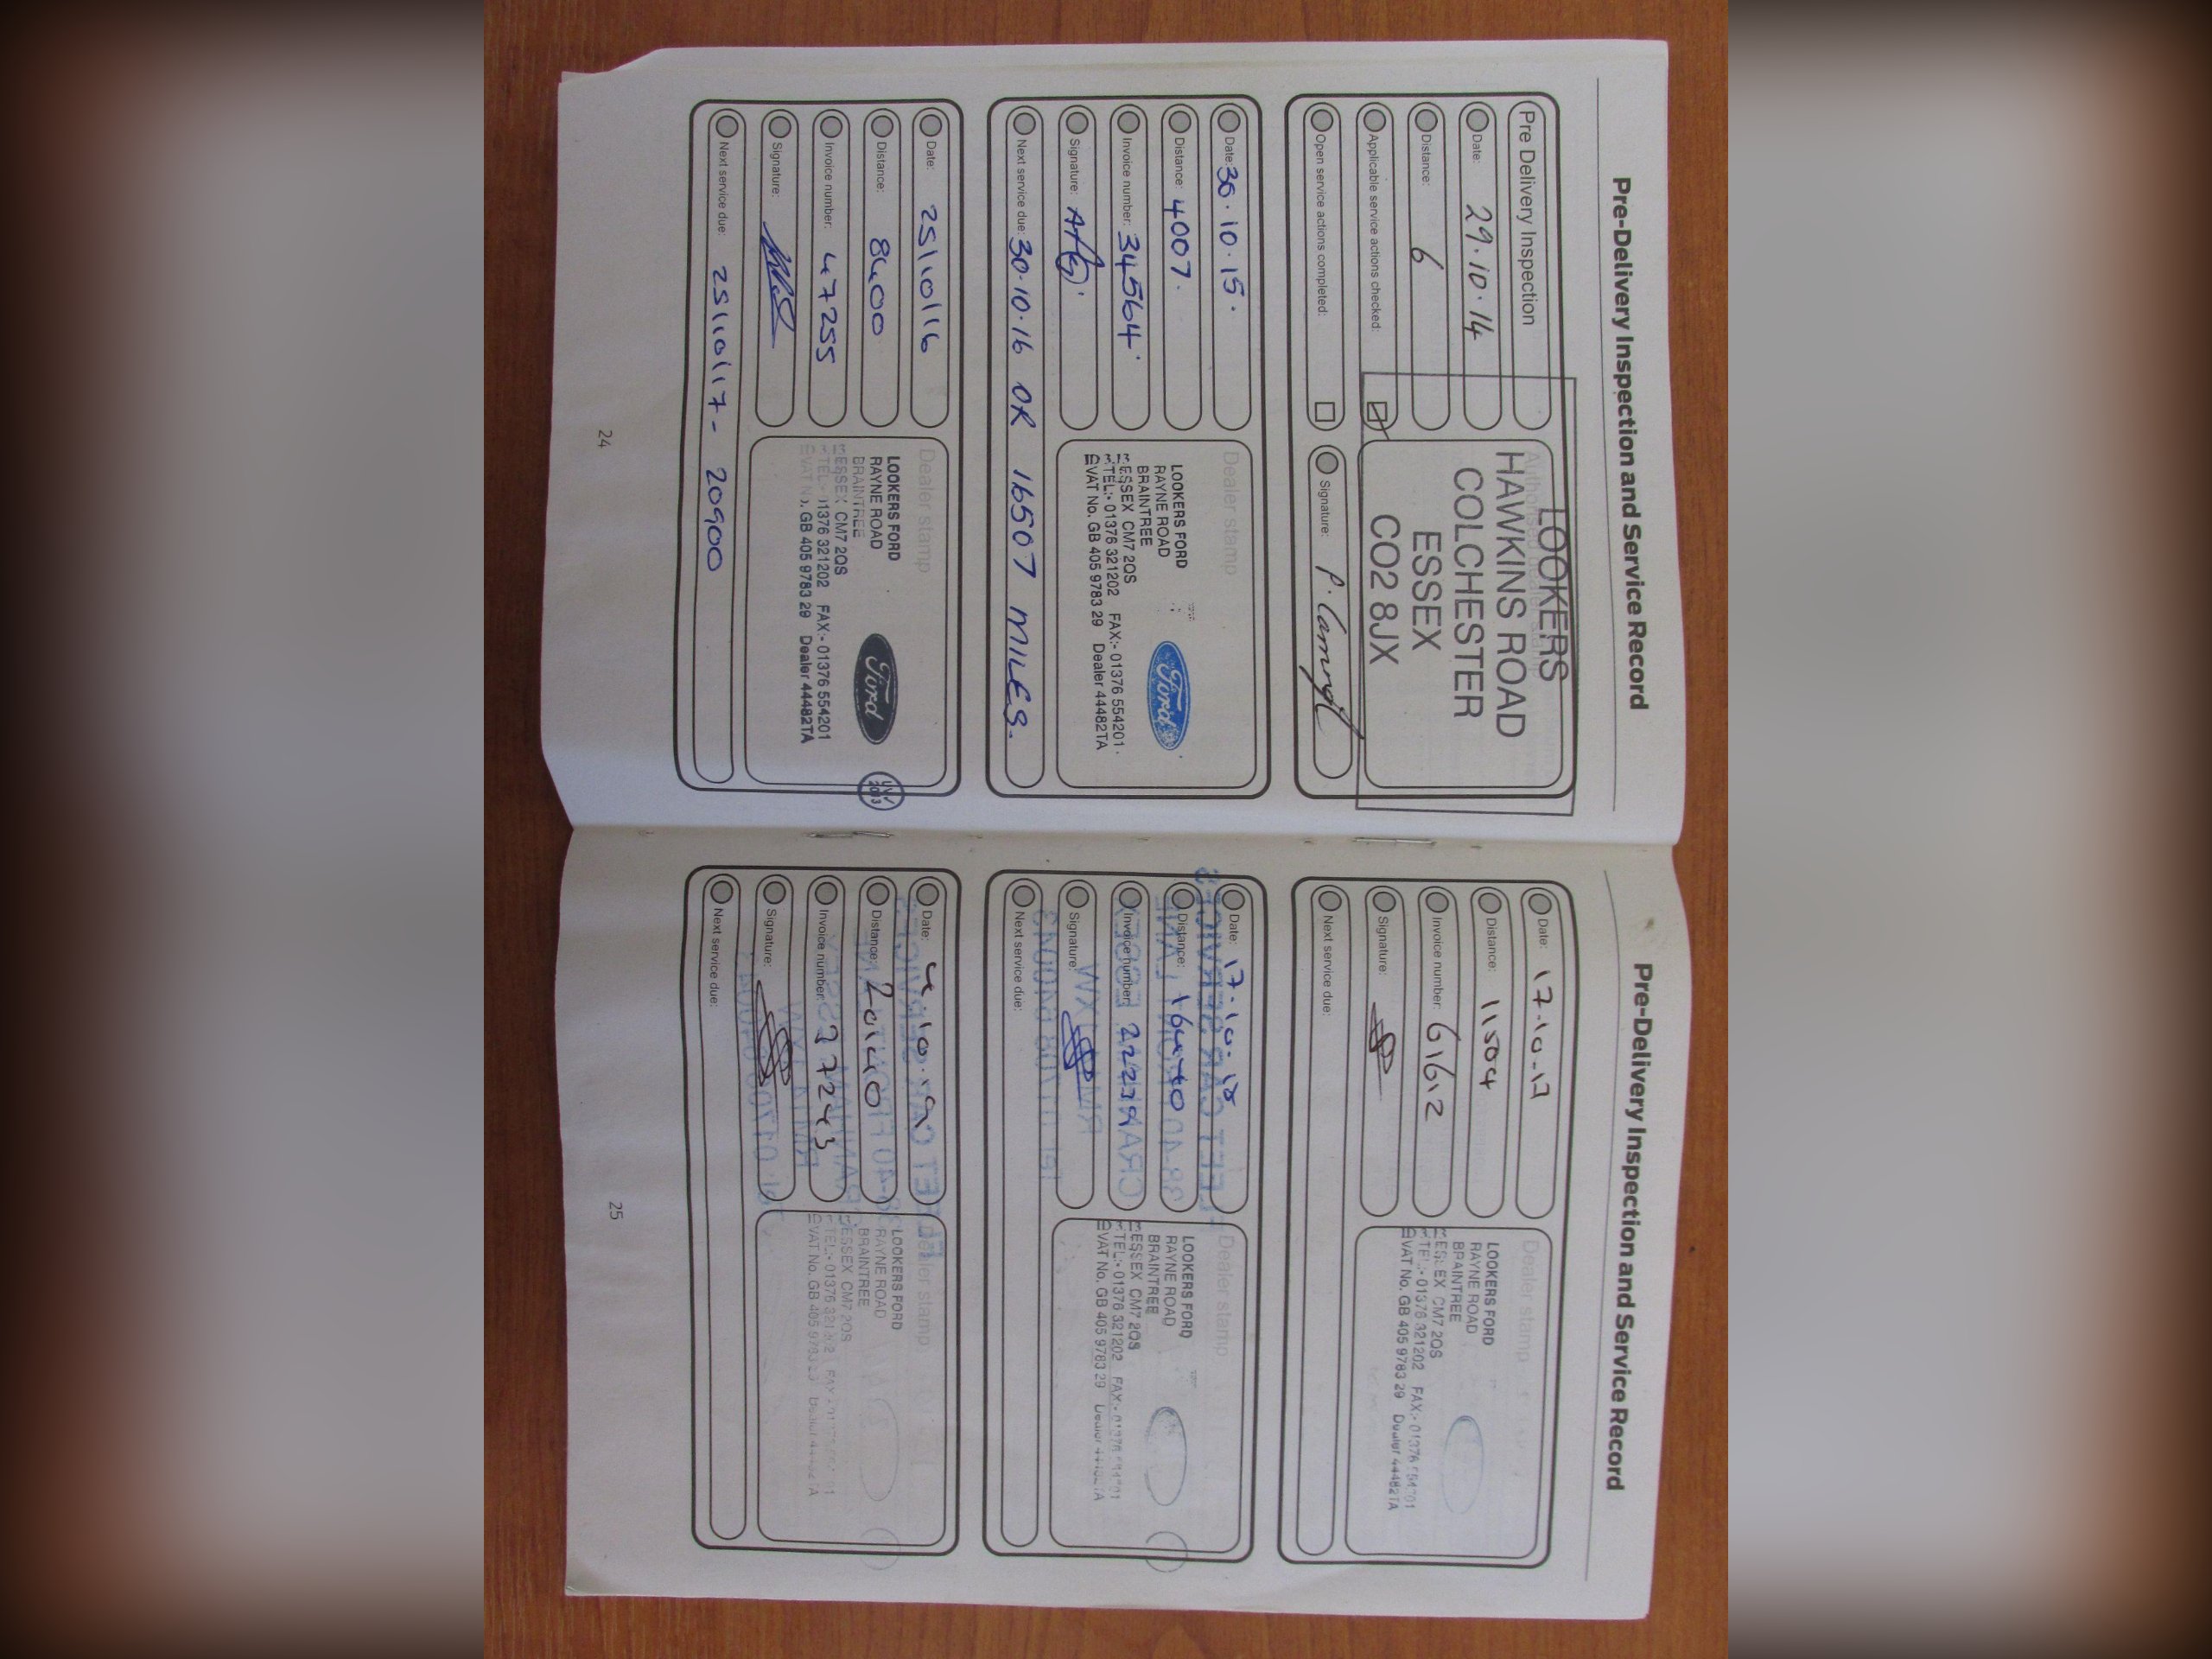 Pre-Delivery Inspection and Service Record
Pre Delivery Inspection
Date: 29.10.14
Distance: 6
Applicable service actions checked:
Open service actions completed:
Authorised dealer stamp
LOOKERS
HAWKINS ROAD
COLCHESTER
ESSEX
CO2 8JX
Signature:
Date: 30.10.15.
Distance: 4007.
Invoice number: 34564
Signature:
Next service due: 30.10.16 OR 16507 MILES.
Dealer stamp
LOOKERS FORD
RAYNE ROAD
BRAINTREE
ESSEX CM7 2QS
TEL:- 01376 321202 FAX:- 01376 554201
VAT No. GB 405 9783 29 Dealer 44482TA
Ford
Date: 25/10/16
Distance: 8400
Invoice number: 47255
Signature:
Next service due: 25/10/17 - 20900
Dealer stamp
LOOKERS FORD
RAYNE ROAD
BRAINTREE
ESSEX CM7 2QS
TEL:- 01376 321202 FAX:- 01376 554201
VAT No. GB 405 9783 29 Dealer 44482TA
Ford
24
Pre-Delivery Inspection and Service Record
Date: 17.10.17
Distance: 11504
Invoice number: 61612
Signature:
Next service due:
Dealer stamp
LOOKERS FORD
RAYNE ROAD
BRAINTREE
ESSEX CM7 2QS
TEL:- 01376 321202 FAX:- 01376
VAT No. GB 405 9783 29 Dealer 44482TA
Date: 17.10.18
Distance: 16440
Invoice number:
Signature:
Next service due:
Dealer stamp
LOOKERS FORD
RAYNE ROAD
BRAINTREE
ESSEX CM7 2QS
TEL:- 01376 321202 FAX:-
VAT No. GB 405 9783 29
Date: 4.10.19
Distance: 20140
Invoice number: 37243
Signature:
Next service due:
Dealer stamp
LOOKERS FORD
RAYNE ROAD
BRAINTREE
ESSEX CM7 2QS
TEL:- 01376
VAT No. GB 405 9783
25